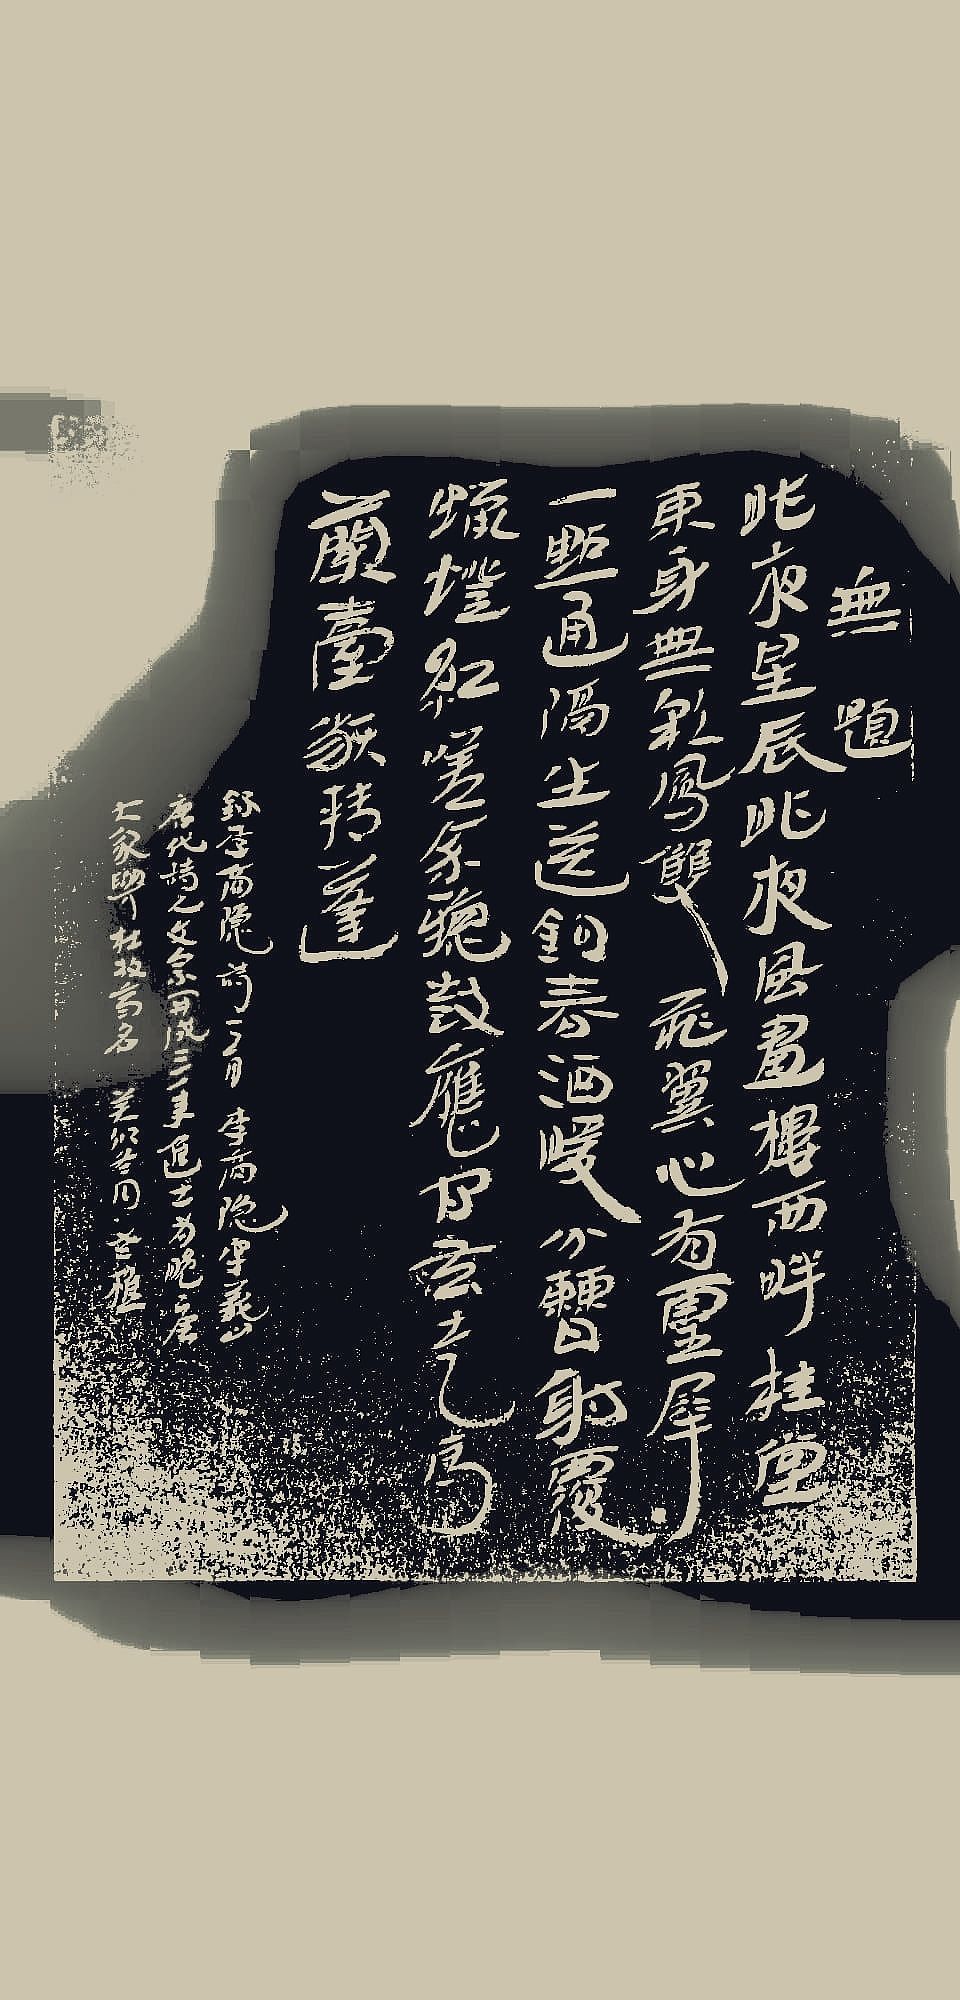 無題
昨夜星辰昨夜風畫樓西畔桂堂
東身無彩鳳雙飛翼心有靈犀
一點通隔坐送鉤春酒暖分曹射覆
蠟燈紅嗟余聽鼓應官去走馬
蘭臺類轉蓬
錄李商隱詩一首 李商隱字義山
唐代詩人文宗開成二年進士為晚唐
大家與杜牧齊名